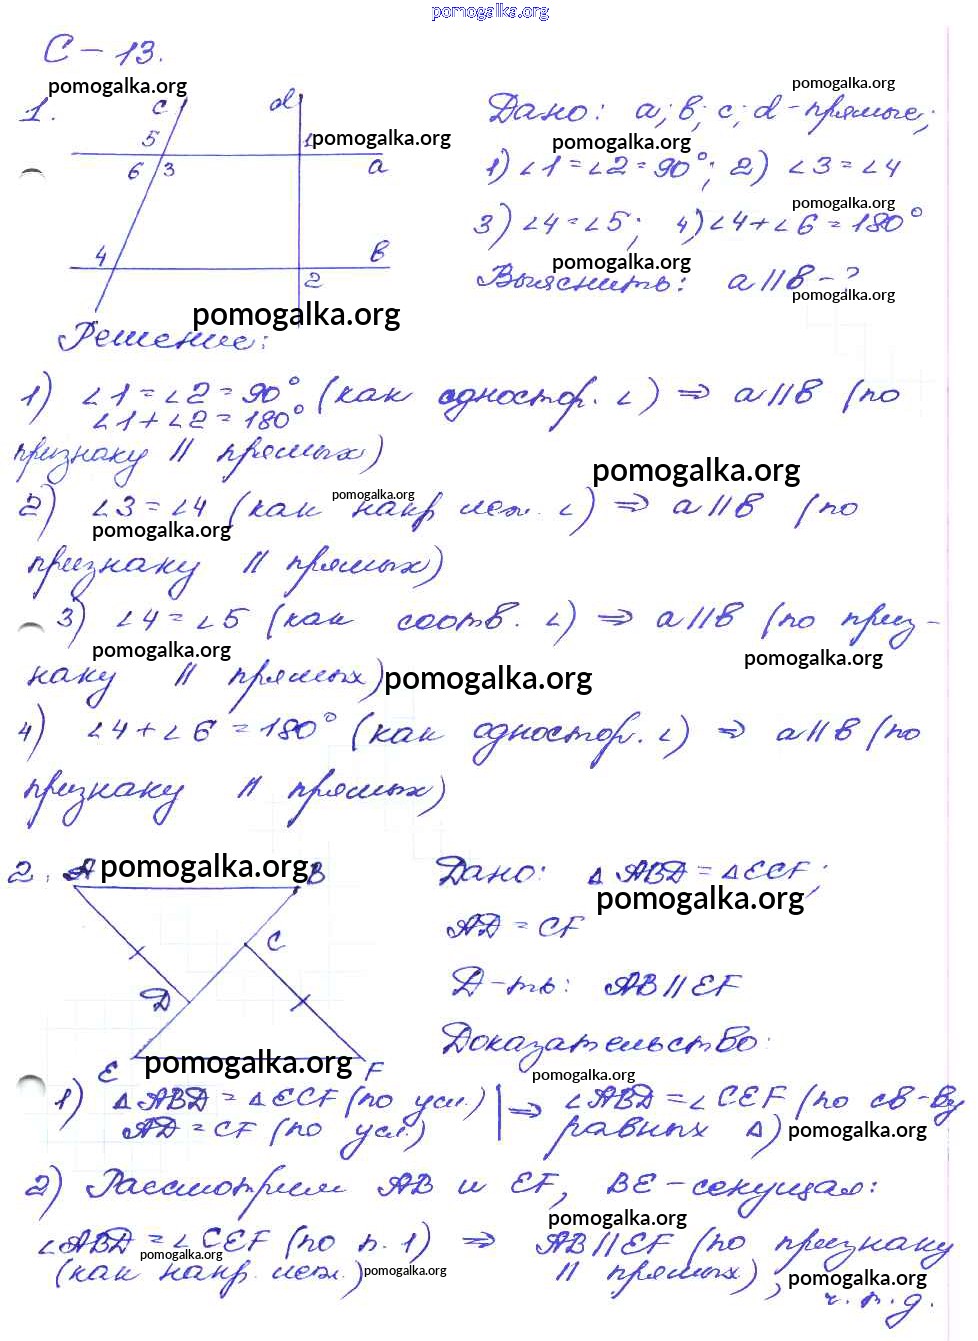 pomogalka.org
С – 13.
pomogalka.org
pomogalka.org
1.
c
d
5
1
pomogalka.org
a
6 3
4
b
2
pomogalka.org
Дано: a; b; c; d – прямые;
pomogalka.org
1) ∠1 = ∠2 = 90°; 2) ∠3 = ∠4
pomogalka.org
3) ∠4 = ∠5; 4) ∠4 + ∠6 = 180°
pomogalka.org
Выяснить: a || b – ?
pomogalka.org
Решение:
1) ∠1 = ∠2 = 90° (как одностор. ∠) ⇒ a || b (по
∠1 + ∠2 = 180°
признаку || прямых)
pomogalka.org
pomogalka.org
2) ∠3 = ∠4 (как накр леж. ∠) ⇒ a || b (по
pomogalka.org
признаку || прямых)
3) ∠4 = ∠5 (как соотв. ∠) ⇒ a || b (по приз-
pomogalka.org
pomogalka.org
наку || прямых)
pomogalka.org
4) ∠4 + ∠6 = 180° (как одностор. ∠) ⇒ a || b (по
признаку || прямых)
2. A
pomogalka.org
B
C
D
E
pomogalka.org
F
Дано: Δ ABD = Δ ECF;
pomogalka.org
AD = CF
Д-ть: AB || EF
Доказательство:
pomogalka.org
1) Δ ABD = Δ ECF (по усл.) | ⇒ ∠ABD = ∠CEF (по св-ву
AD = CF (по усл.) равных Δ)
pomogalka.org
2) Рассмотрим AB и EF, BE – секущая:
pomogalka.org
∠ABD = ∠CEF (по п. 1) ⇒ AB || EF (по признаку
pomogalka.org
(как накр. леж.) || прямых),
pomogalka.org
pomogalka.org
ч.т.д.